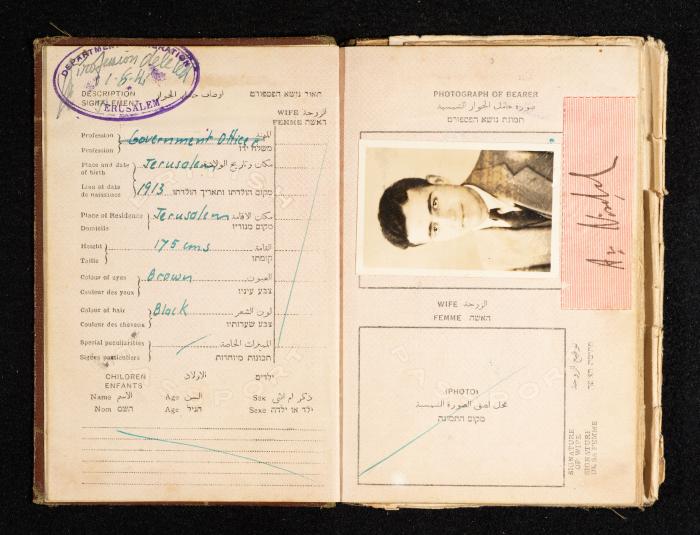 DEPARTMENT MIGRATION
Profession deleted
1-5-41
JERUSALEM
DESCRIPTION
SIGNALEMENT
اوصاف حامل الجواز
תאור נושא הפספורט
WIFE الزوجة
FEMME האשה
Profession المهنة
Profession משלח ידו
Government Officer
Place and date of birth
Jerusalem
مكان وتاريخ الولادة
Lieu et date de naissance
1913
מקום הולדתו ותאריך הולדתו
Place of Residence
Jerusalem
مكان الاقامة
Domicile
מקום מגוריו
Height
175 cms
القامة
Taille
קומתו
Colour of eyes
Brown
العيون
Couleur des yeux
צבע עיניו
Colour of hair
Black
لون الشعر
Couleur des cheveux
צבע שערותיו
Special peculiarities
المميزات الخاصة
Signes particuliers
תכונות מיוחדות
CHILDREN الاولاد ילדים
ENFANTS
Name الاسم Age السن Sex ذكر ام انثى
Nom השם Age הגיל Sexe ילד או ילדה
PASSPORT
PHOTOGRAPH OF BEARER
صورة حامل الجواز الشمسية
תמונת נושא הפספורט
WIFE الزوجة
FEMME האשה
(PHOTO)
محل لصق الصورة الشمسية
מקום התמונה
توقيع الزوجة
חתימת האשה
SIGNATURE OF WIFE
SIGNATURE DE SA FEMME